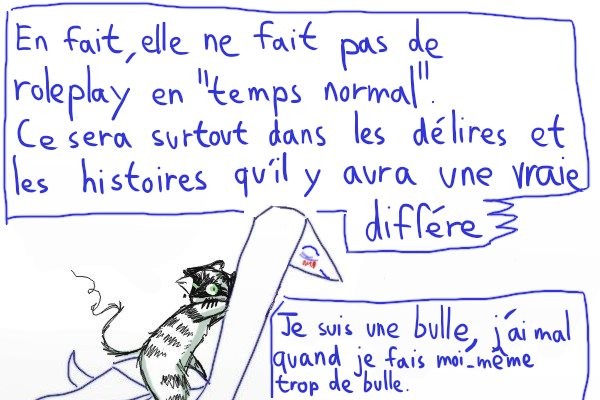 En fait, elle ne fait pas de
roleplay en "temps normal".
Ce sera surtout dans les délires et
les histoires qu'il y aura une vraie
différe
Je suis une bulle, j'ai mal
quand je fais moi-même
trop de bulle.